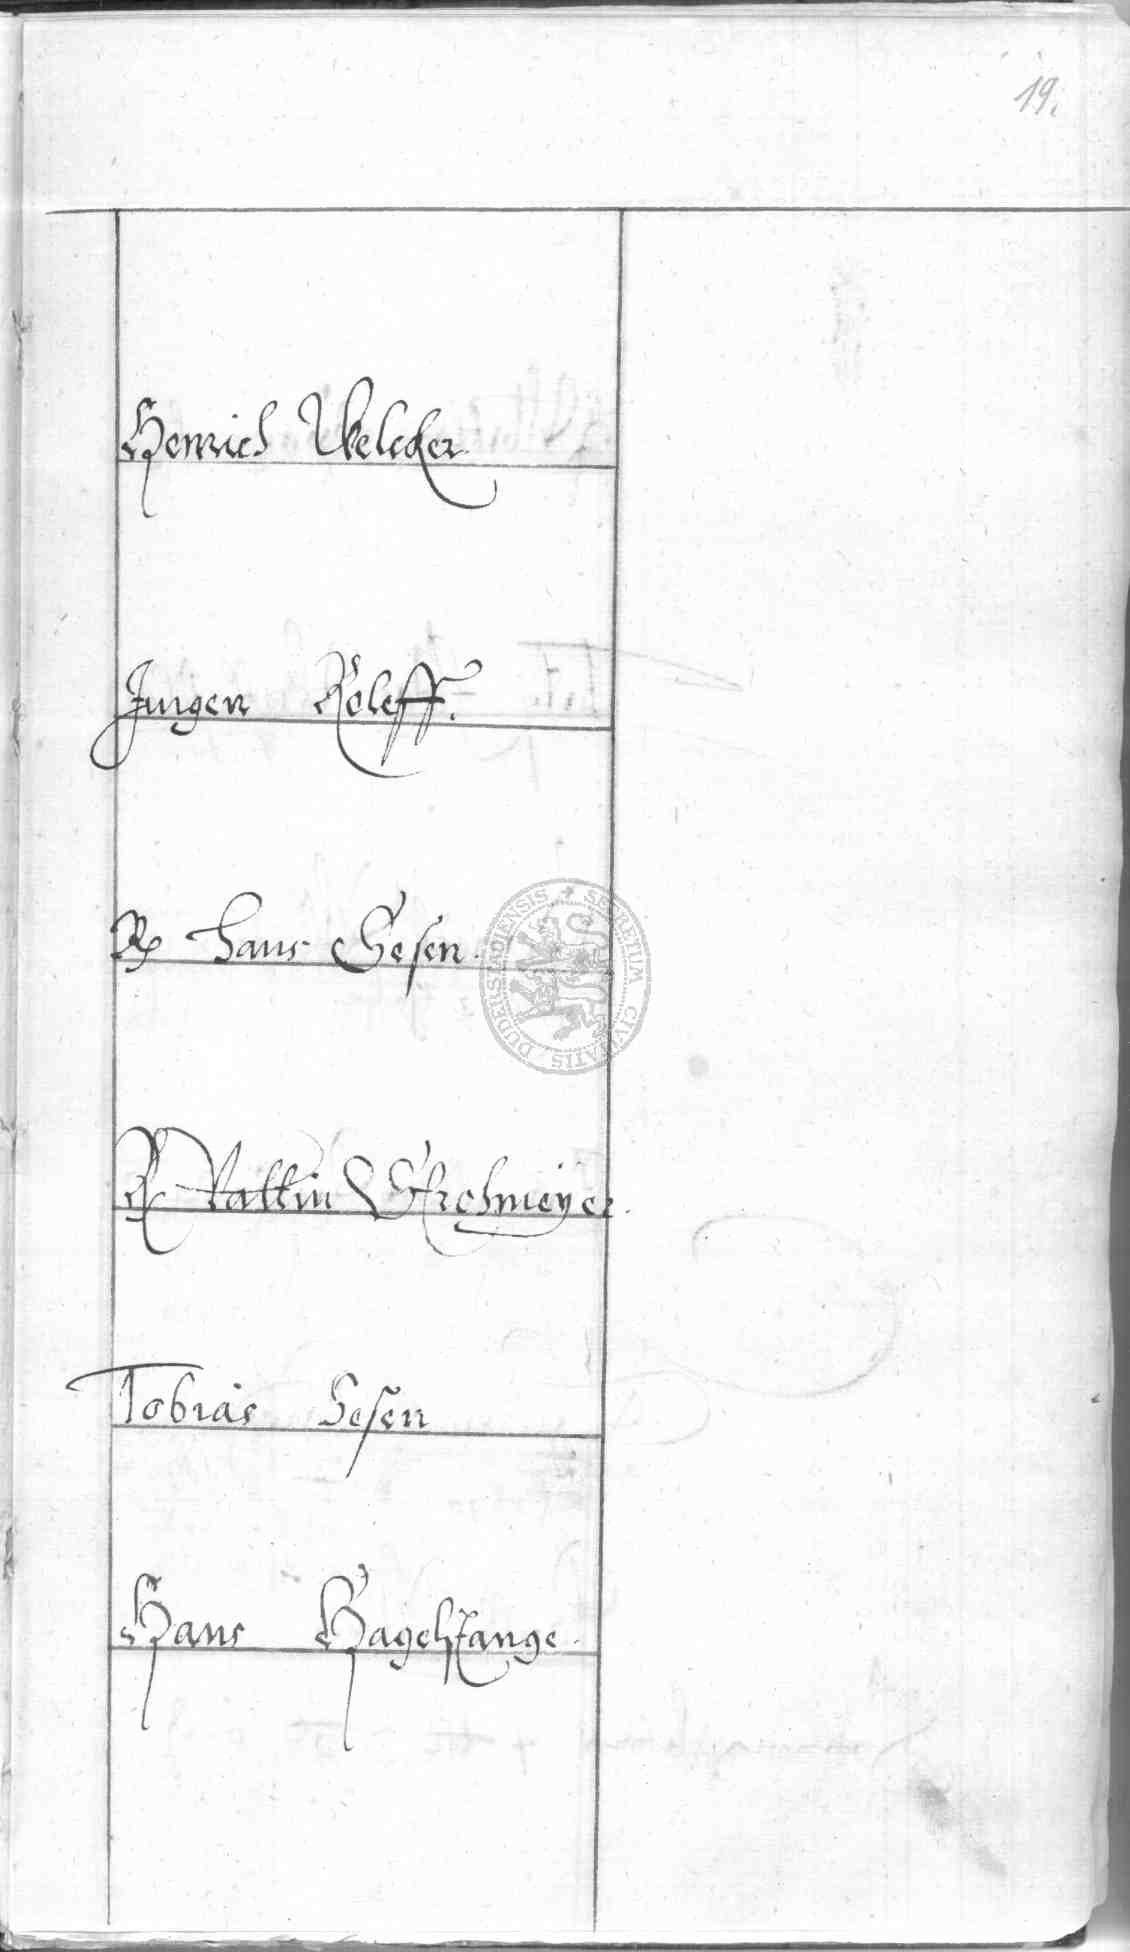 19.
Henrich Welcker
Jurgen Roleff.
R Hans Gesen.
R Vattin Strohmeyer.
Tobias Gesen
Hans Hagelstange.
SECRETUM CIVITATIS DUDERSTADIENSIS